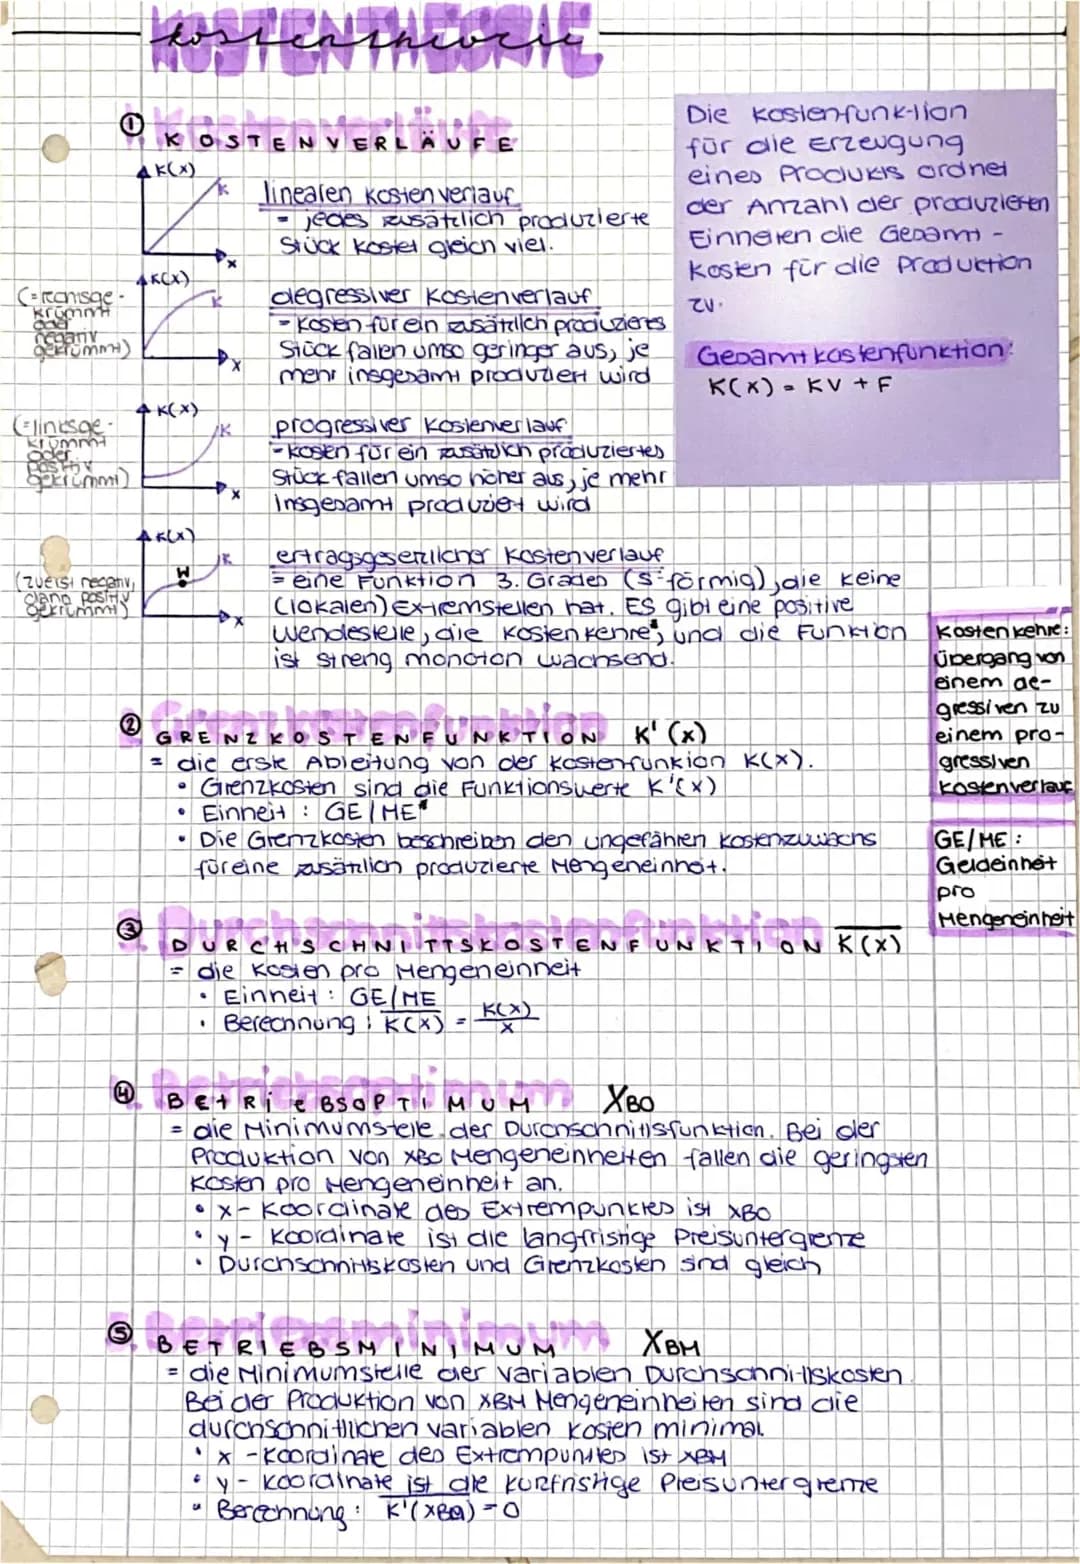 KOSTENTHEORIE
kostentheorie
① KOSTENVERLÄUFE
K(x)
K
x
linearen Kostenverlauf
= jedes zusätzlich produzierte
Stück kostet gleich viel.
(=rechtsge-
krümmt
oder
negativ
gekrümmt)
K(x)
K
x
degressiver Kostenverlauf
= Kosten für ein zusätzlich produziertes
Stück fallen umso geringer aus, je
mehr insgesamt produziert wird
(=linksge-
krümmt
oder
positiv
gekrümmt)
K(x)
K
x
progressiver Kostenverlauf
= Kosten für ein zusätzlich produziertes
Stück fallen umso höher aus, je mehr
insgesamt produziert wird
(zuerst negativ,
dann positiv
gekrümmt)
K(x)
W
K
x
ertragsgesetzlicher Kostenverlauf
= eine Funktion 3. Grades (s-förmig), die keine
(lokalen) Extremstellen hat. Es gibt eine positive
Wendestelle, die Kostenkehre*, und die Funktion
ist streng monoton wachsend.
Die Kostenfunktion
für die Erzeugung
eines Produkts ordnet
der Anzahl der produzierten
Einheiten die Gesamt-
kosten für die Production
zu.
Gesamtkostenfunktion:
K(x) = KV + F
Kostenkehre:
Übergang von
einem de-
gressiven zu
einem pro-
gressiven
Kostenverlauf
② Grenzkostenfunktion
GRENZKOSTENFUNKTION K'(x)
= die erste Ableitung von der Kostenfunktion K(x).
• Grenzkosten sind die Funktionswerte K'(x)
• Einheit: GE/ME*
• Die Grenzkosten beschreiben den ungefähren Kostenzuwachs
für eine zusätzlich produzierte Mengeneinheit.
GE/ME:
Geldeinheit
pro
Mengeneinheit
③ 3. Durchschnittskostenfunktion
DURCHSCHNITTSKOSTENFUNKTION K̅(x)
= die Kosten pro Mengeneinheit
• Einheit: GE/ME
• Berechnung: K̅(x) = K(x)/x
④ 4. Betriebsoptimum
BETRIEBSOPTIMUM XBO
= die Minimumstelle der Durchschnittsfunktion. Bei der
Produktion von xBO Mengeneinheiten fallen die geringsten
Kosten pro Mengeneinheit an.
• x-Koordinate des Extrempunktes ist xBO
• y-Koordinate ist die langfristige Preisuntergrenze
• Durchschnittskosten und Grenzkosten sind gleich
⑤ 5. Betriebsminimum
BETRIEBSMINIMUM XBM
= die Minimumstelle der variablen Durchschnittskosten.
Bei der Produktion von xBM Mengeneinheiten sind die
durchschnittlichen variablen Kosten minimal.
• x-Koordinate des Extrempunktes ist xBM
• y-Koordinate ist die kurzfristige Preisuntergrenze
• Berechnung: K̅'(xBO) = 0